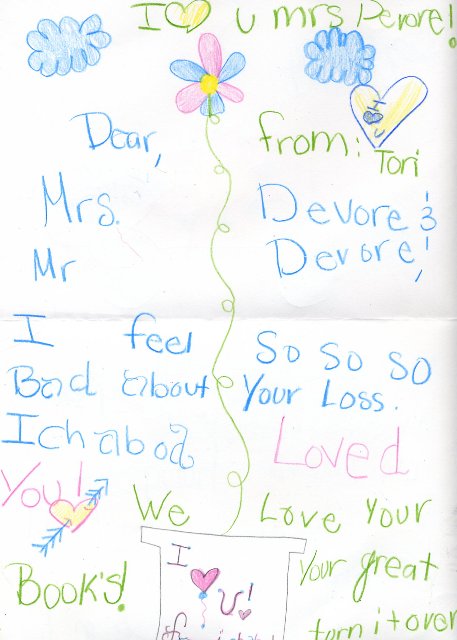 I U mrs Devore!
Dear, from: Tori
I U
Mrs. Devore &
Mr Devore!,
I feel so so so
Bad about Your Loss.
Ichabod Loved
You! We Love Your
Book's! Your great
I U!
from ichabod
torn it over